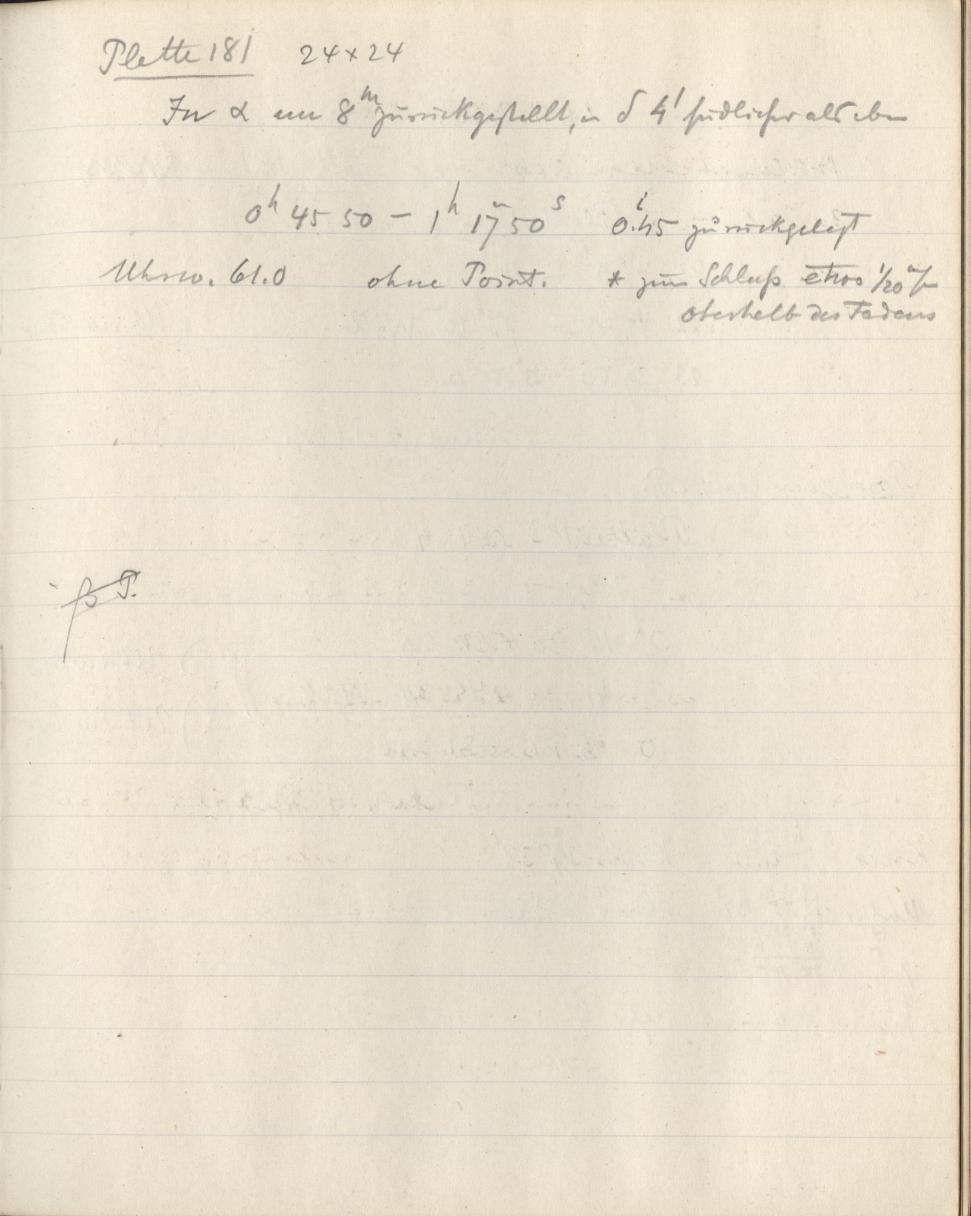 Platte 181 24×24
In α um 8ᵐ zurückgestellt, in δ 4' südlicher als eben
0ʰ 45 50 – 1ʰ 17ᵐ 50ˢ 0.45 zurückgelegt
Uhrw. 61.0 ohne Point. * zum Schluß etwa 1/20
oberhalb des Fadens
P.